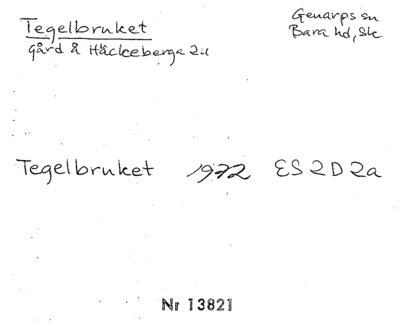 Tegelbruket
gård å Häckeberga 2:1
Genarps sn
Bara hd, Sk
Tegelbruket 1972 ES 2 D 2a
Nr 13821